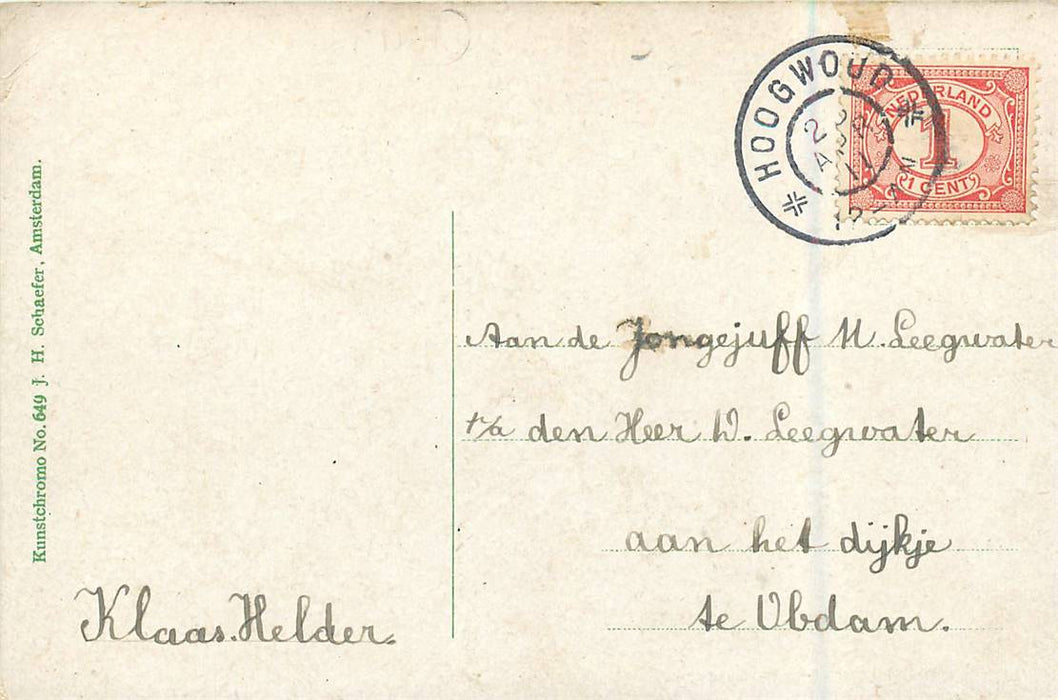 HOOGWOUD
NEDERLAND
1
1 CENT
Kunstchromo No. 649 J. H. Schaefer, Amsterdam.
Aan de Jongejuff M. Leegwater
p/a den Heer W. Leegwater
aan het dijkje
te Obdam.
Klaas Helder.